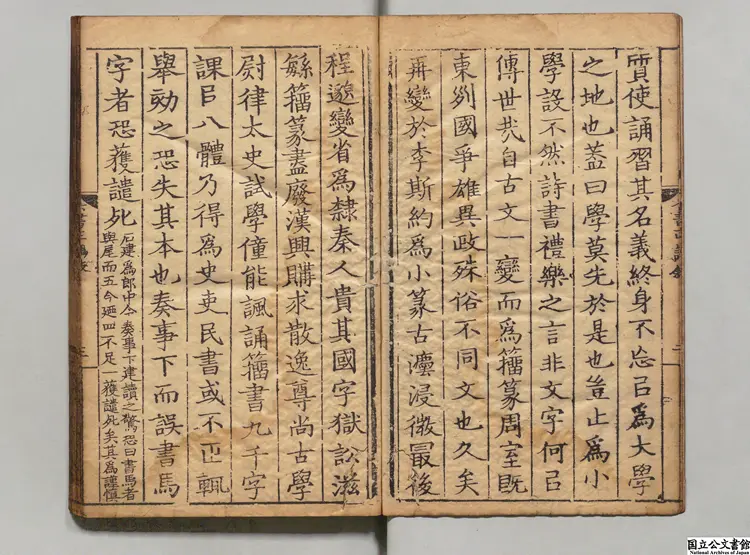 質使誦習其名義終身不忘㠯爲大學
之地也蓋曰學莫先於是也豈止爲小
學設不然詩書禮樂之言非文字何㠯
傳世㢤自古文一變而爲籀篆周室旣
東列國爭雄異政殊俗不同文也久矣
再變於李斯約爲小篆古灋浸微最後
程邈變省爲隸秦人貴其國字獄訟滋
繇籀篆盡廢漢興購求散逸尊尚古學
尉律太史試學僮能諷誦籀書九千字
課㠯八體乃得爲史吏民書或不正輒
舉劾之恐失其本也奏事下而誤書馬
字者恐獲譴死
石建爲郎中令奏事下建讀之驚恐曰書馬者
與尾而五今廼四不足一獲譴死矣其爲謹慎
国立公文書館
National Archives of Japan